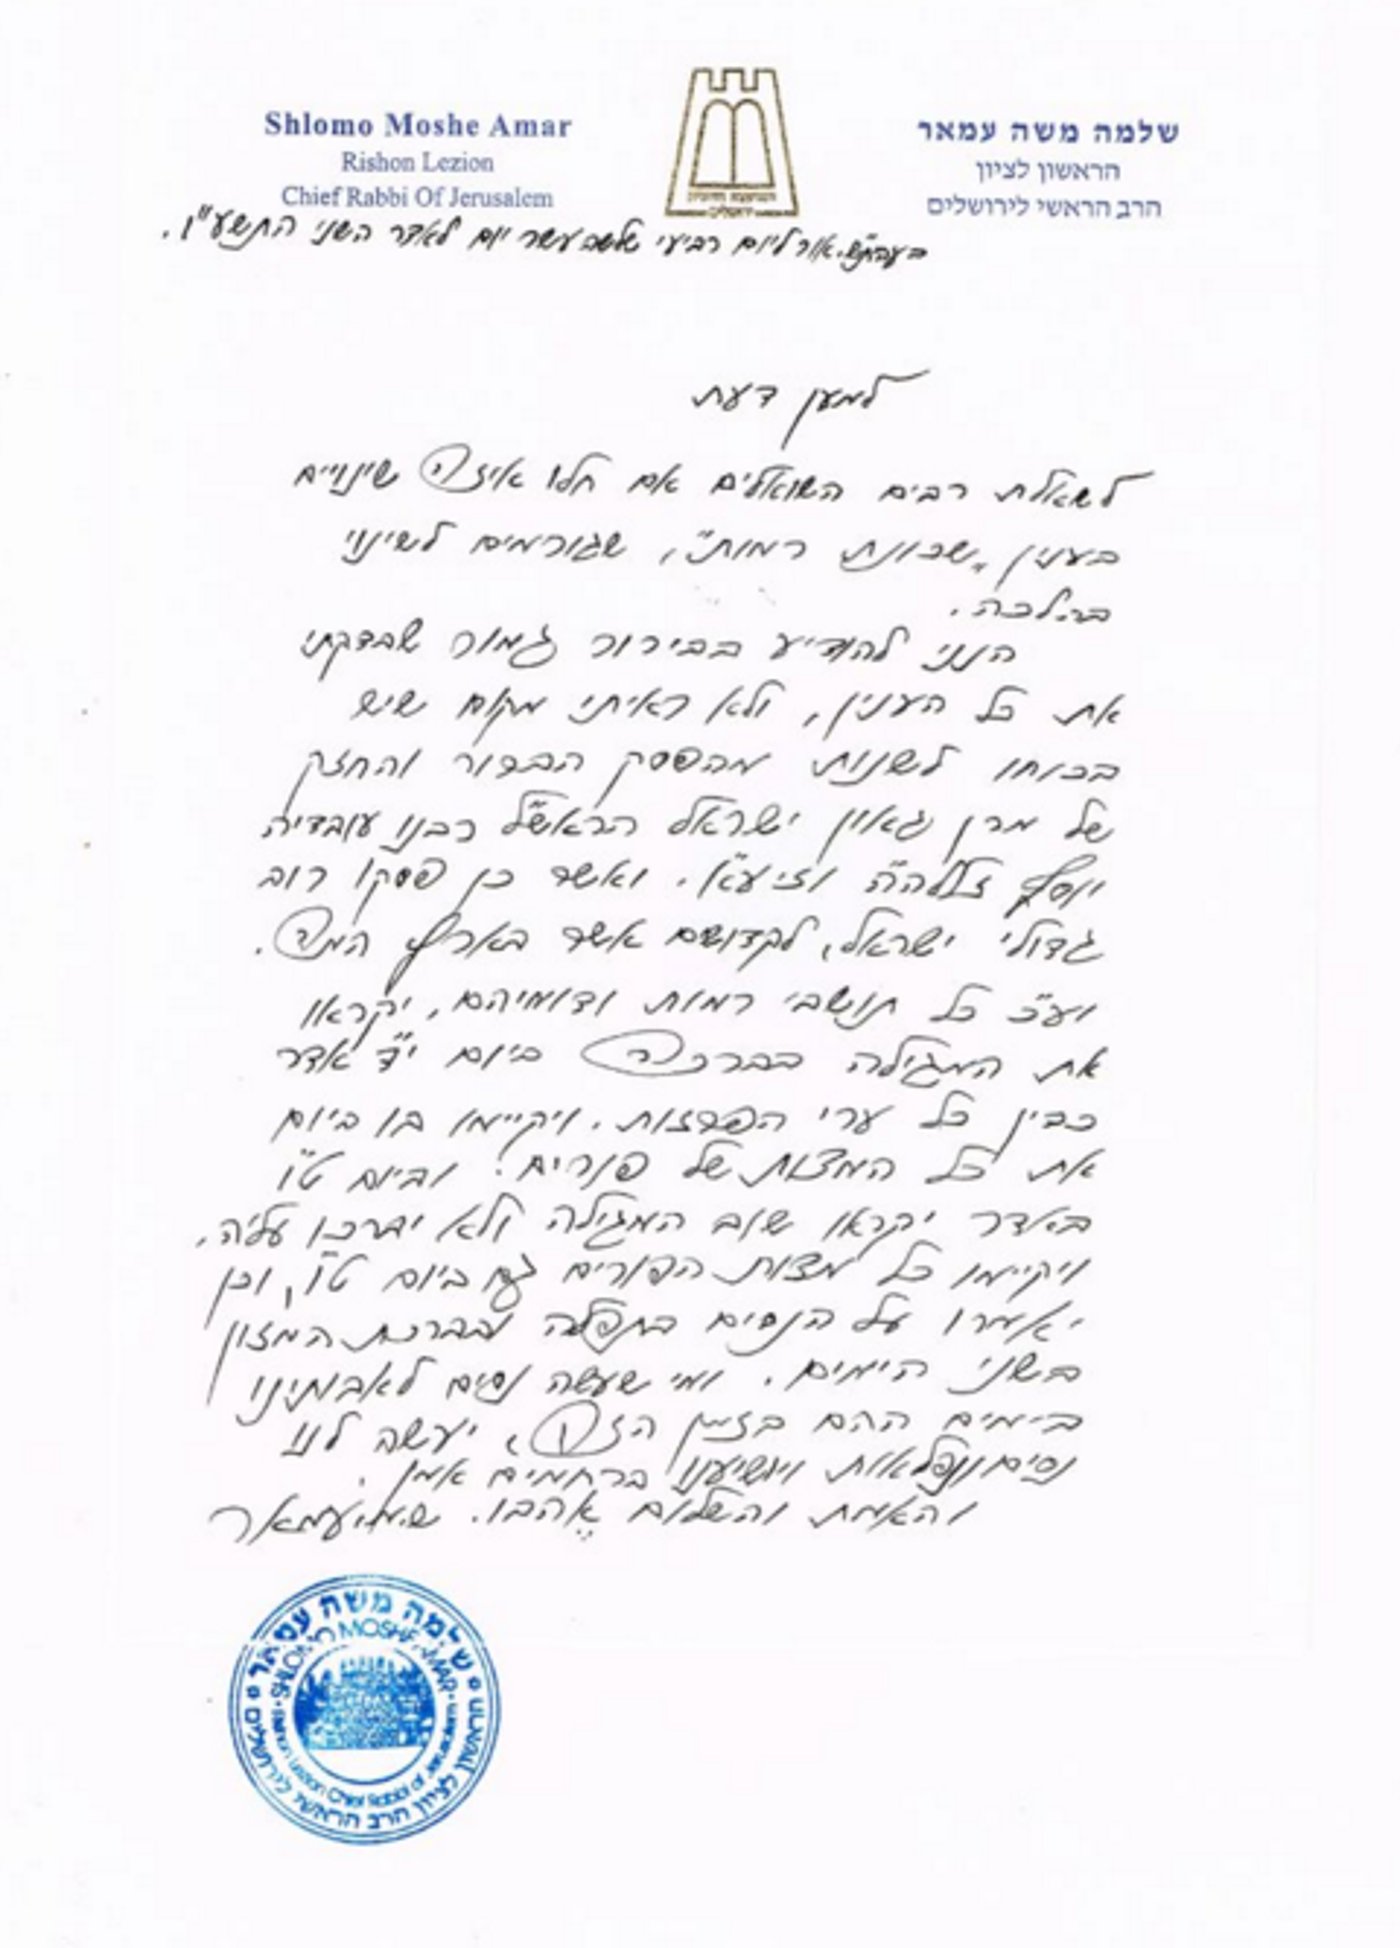 Shlomo Moshe Amar
Rishon Lezion
Chief Rabbi Of Jerusalem
שלמה משה עמאר
הראשון לציון
הרב הראשי לירושלים
אור ליום רביעי שלשה עשר יום לאדר השני התשע"ו.
למען דעת
לשאלת רבים השואלים אם חלו איזה שינויים
בענין "שכונת רמות", שגורמים לשינוי
בהלכה.
הנני להודיע בבירור גמור שבדקתי
את כל הענין, ולא ראיתי מקום שיש
בכוחו לשנות מהפסק הברור והחזק
של מרן גאון ישראל הראש"ל רבנו עובדיה
יוסף זללה"ה וזיע"א. ואשר כן פסקו רוב
גדולי ישראל, לקדושים אשר בארץ המה.
וע"כ כל תושבי רמות ודומיהם, יקראו
את המגילה בברכה ביום י"ד אדר
כבין כל ערי הפרזות. ויקיימו בו ביום
את כל המצות של פורים. וביום ט"ו
באדר יקראו שוב המגילה ולא יברכו עליה,
ויקיימו כל מצות הפורים גם ביום ט"ו, וכן
יאמרו על הנסים בתפלה ובברכת המזון
בשני הימים. ומי שעשה נסים לאבותינו
בימים ההם בזמן הזה, יעשה לנו
נסים ונפלאות ויושיענו ברחמים אמן.
והאמת והשלום אֱהבו. ש.מ. עמאר
שלמה משה עמאר
SHLOMO MOSHE AMAR
Rishon Lezion Chief Rabbi of Jerusalem
הראשון לציון הרב הראשי לירושלים